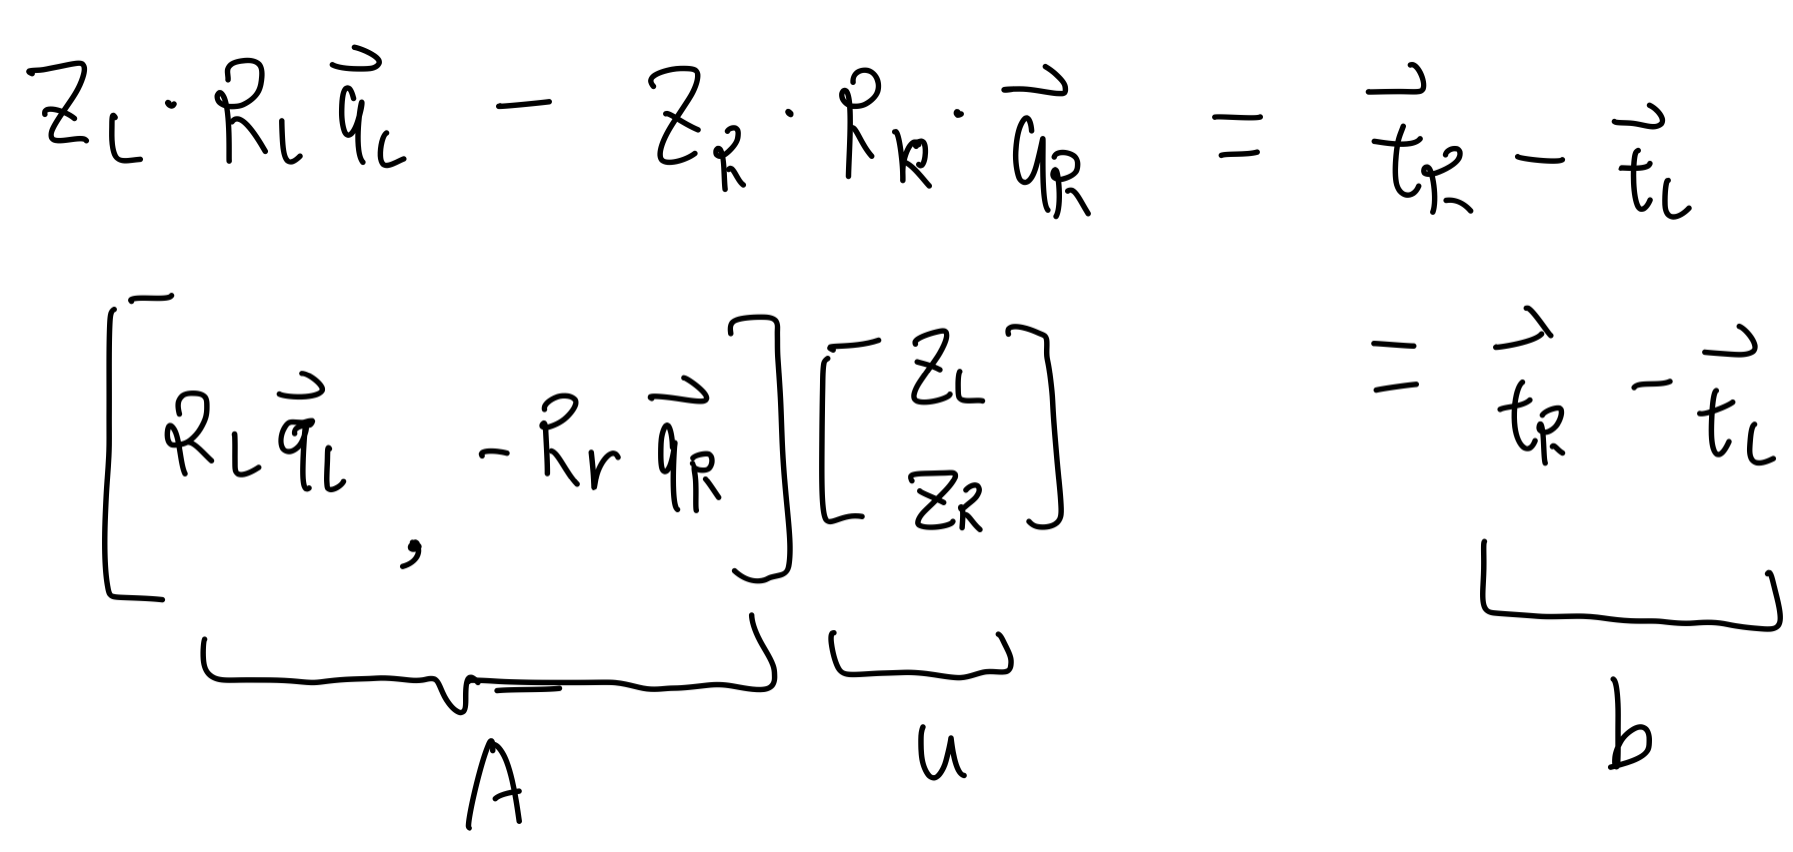 Z_L · R_L q⃗_L − Z_R · R_R · q⃗_R = t⃗_R − t⃗_L
[ R_L q⃗_L , −R_r q⃗_R ] [ Z_L Z_R ] = t⃗_R − t⃗_L
A u b